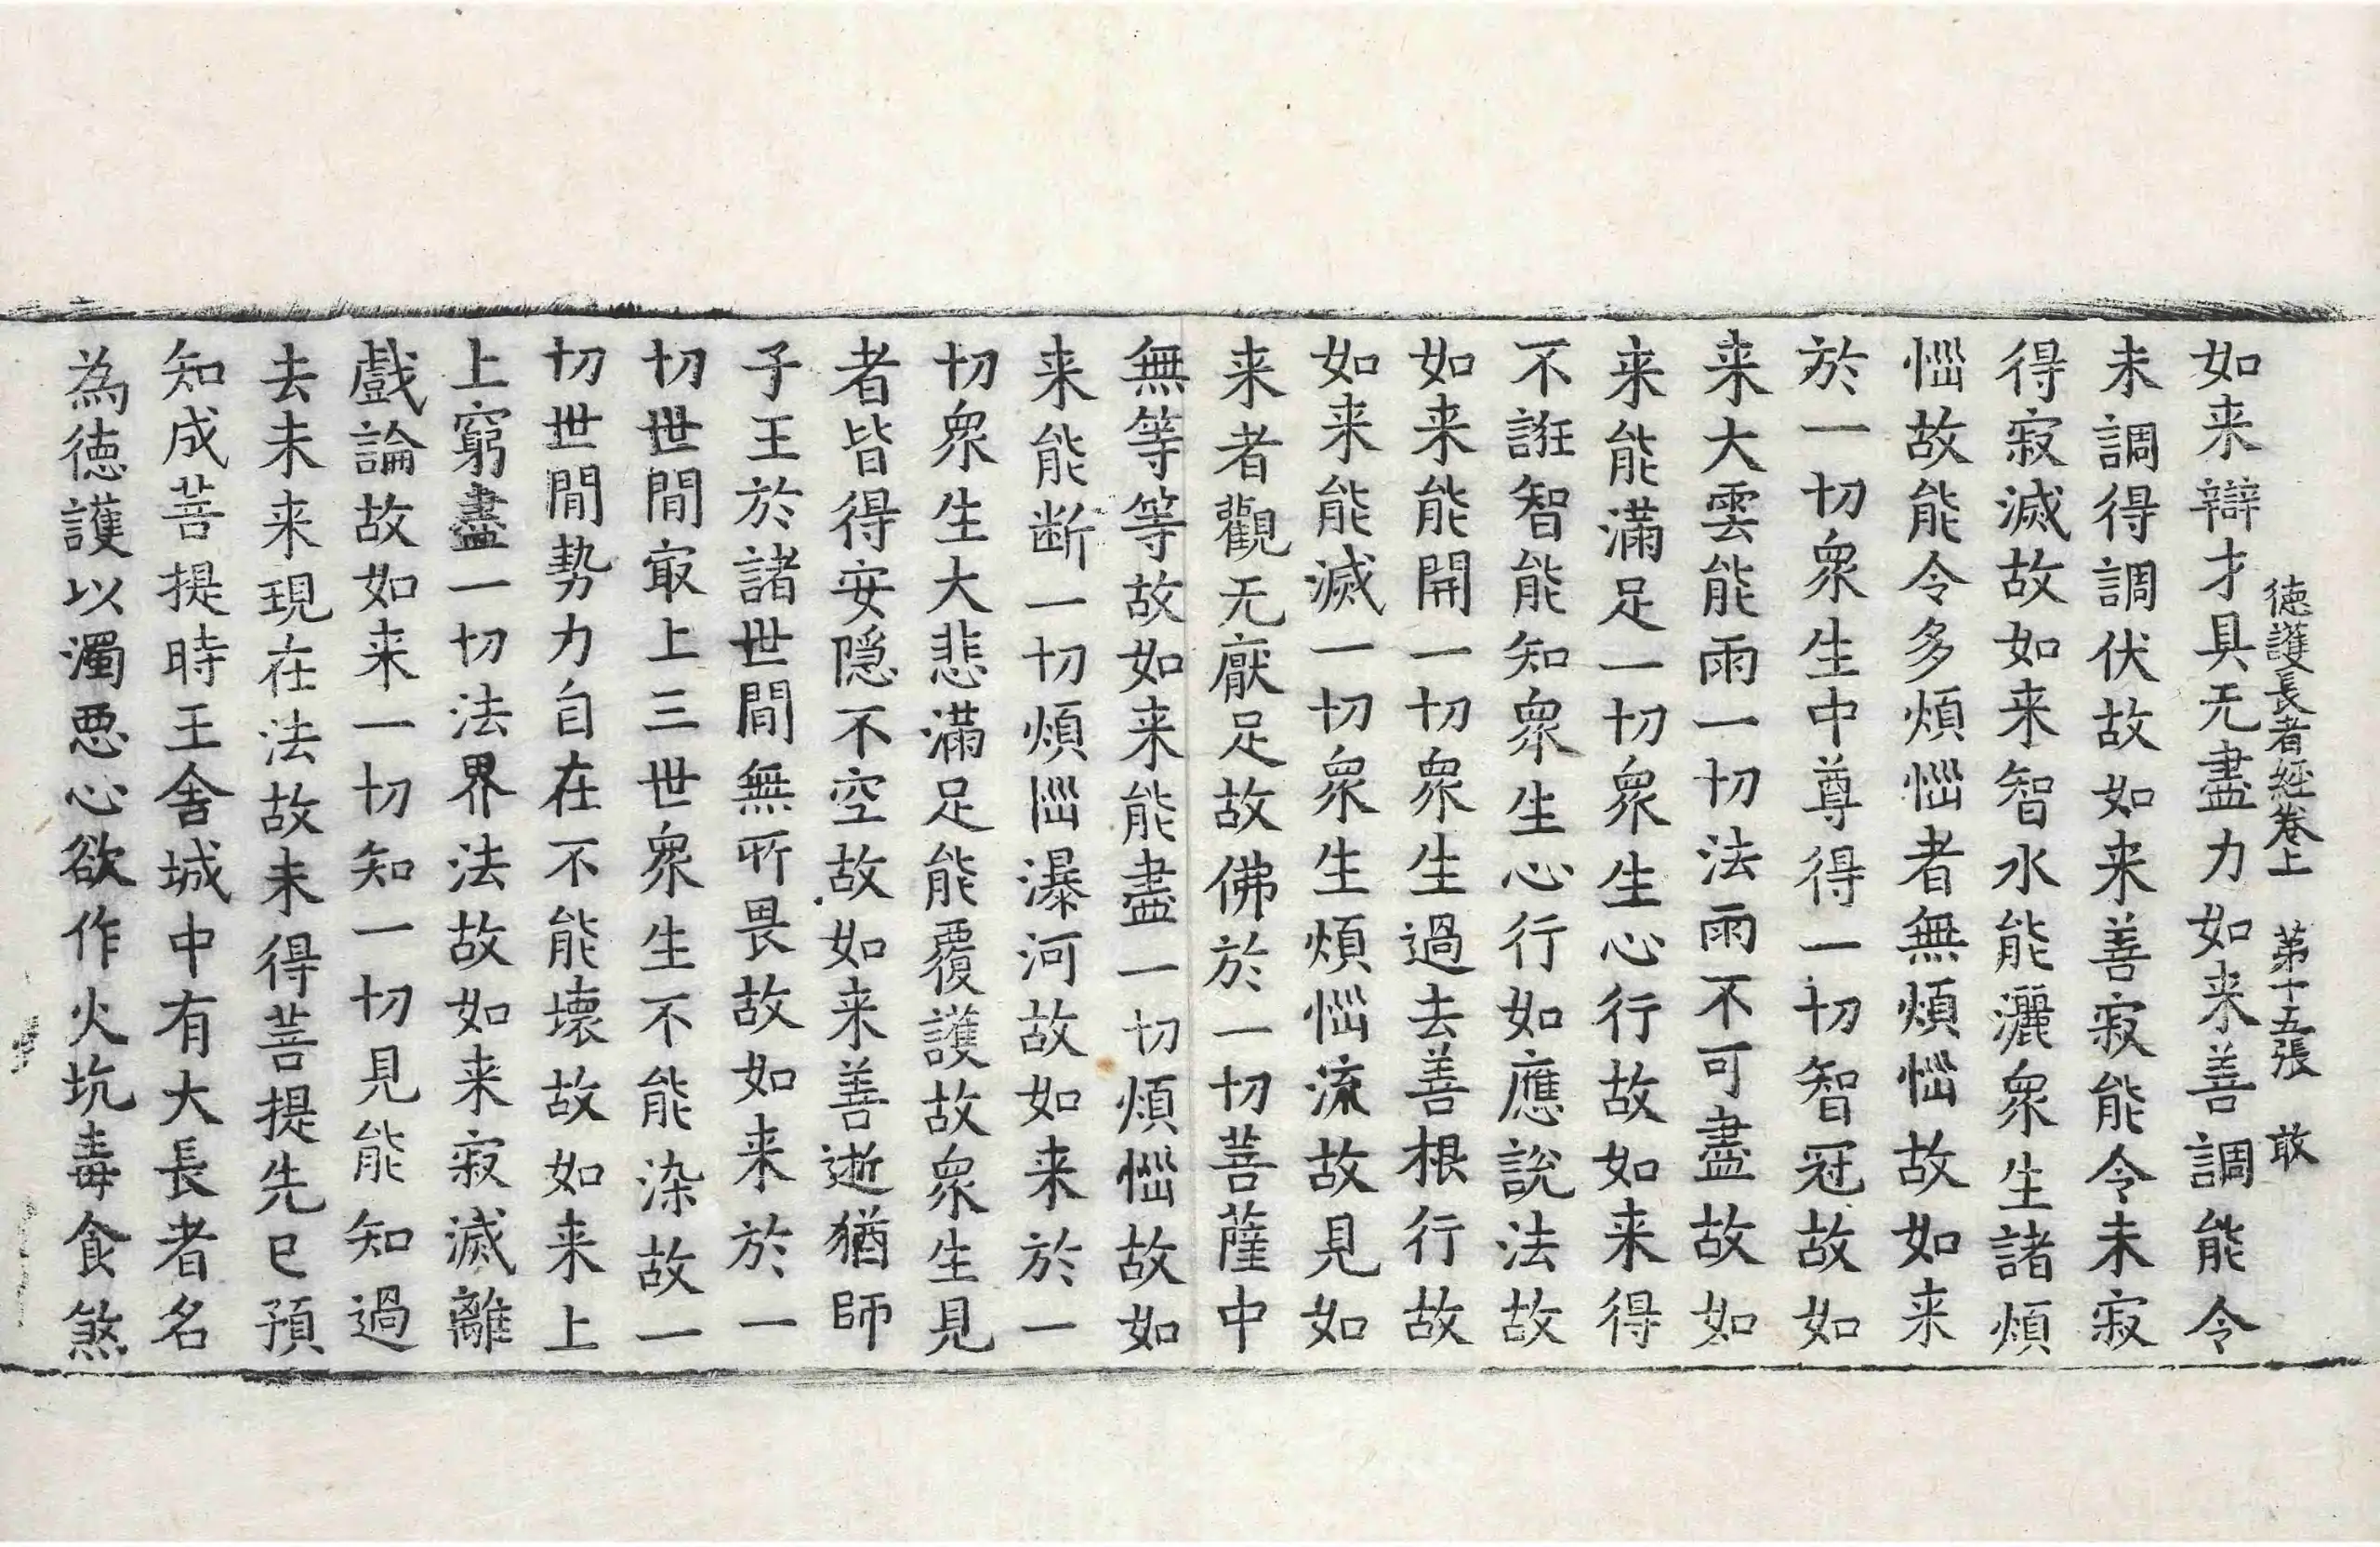 德護長者經卷上 第十五張 敢
如来辯才具无盡力如来善調能令
未調得調伏故如来善寂能令未寂
得寂滅故如来智水能灑衆生諸煩
惱故能令多煩惱者無煩惱故如来
於一切衆生中尊得一切智冠故如
来大雲能雨一切法雨不可盡故如
来能滿足一切衆生心行故如来得
不誑智能知衆生心行如應說法故
如来能開一切衆生過去善根行故
如来能滅一切衆生煩惱流故見如
来者觀无厭足故佛於一切菩薩中
無等等故如来能盡一切煩惱故如
来能断一切煩惱瀑河故如来於一
切衆生大悲滿足能覆護故衆生見
者皆得安隠不空故如来善逝猶師
子王於諸世間無所畏故如来於一
切世間㝡上三世衆生不能染故一
切世間勢力自在不能壞故如来上
上窮盡一切法界法故如来寂滅離
戲論故如来一切知一切見能知過
去未来現在法故未得菩提先已預
知成菩提時王舍城中有大長者名
為德護以濁惡心欲作火坑毒食煞